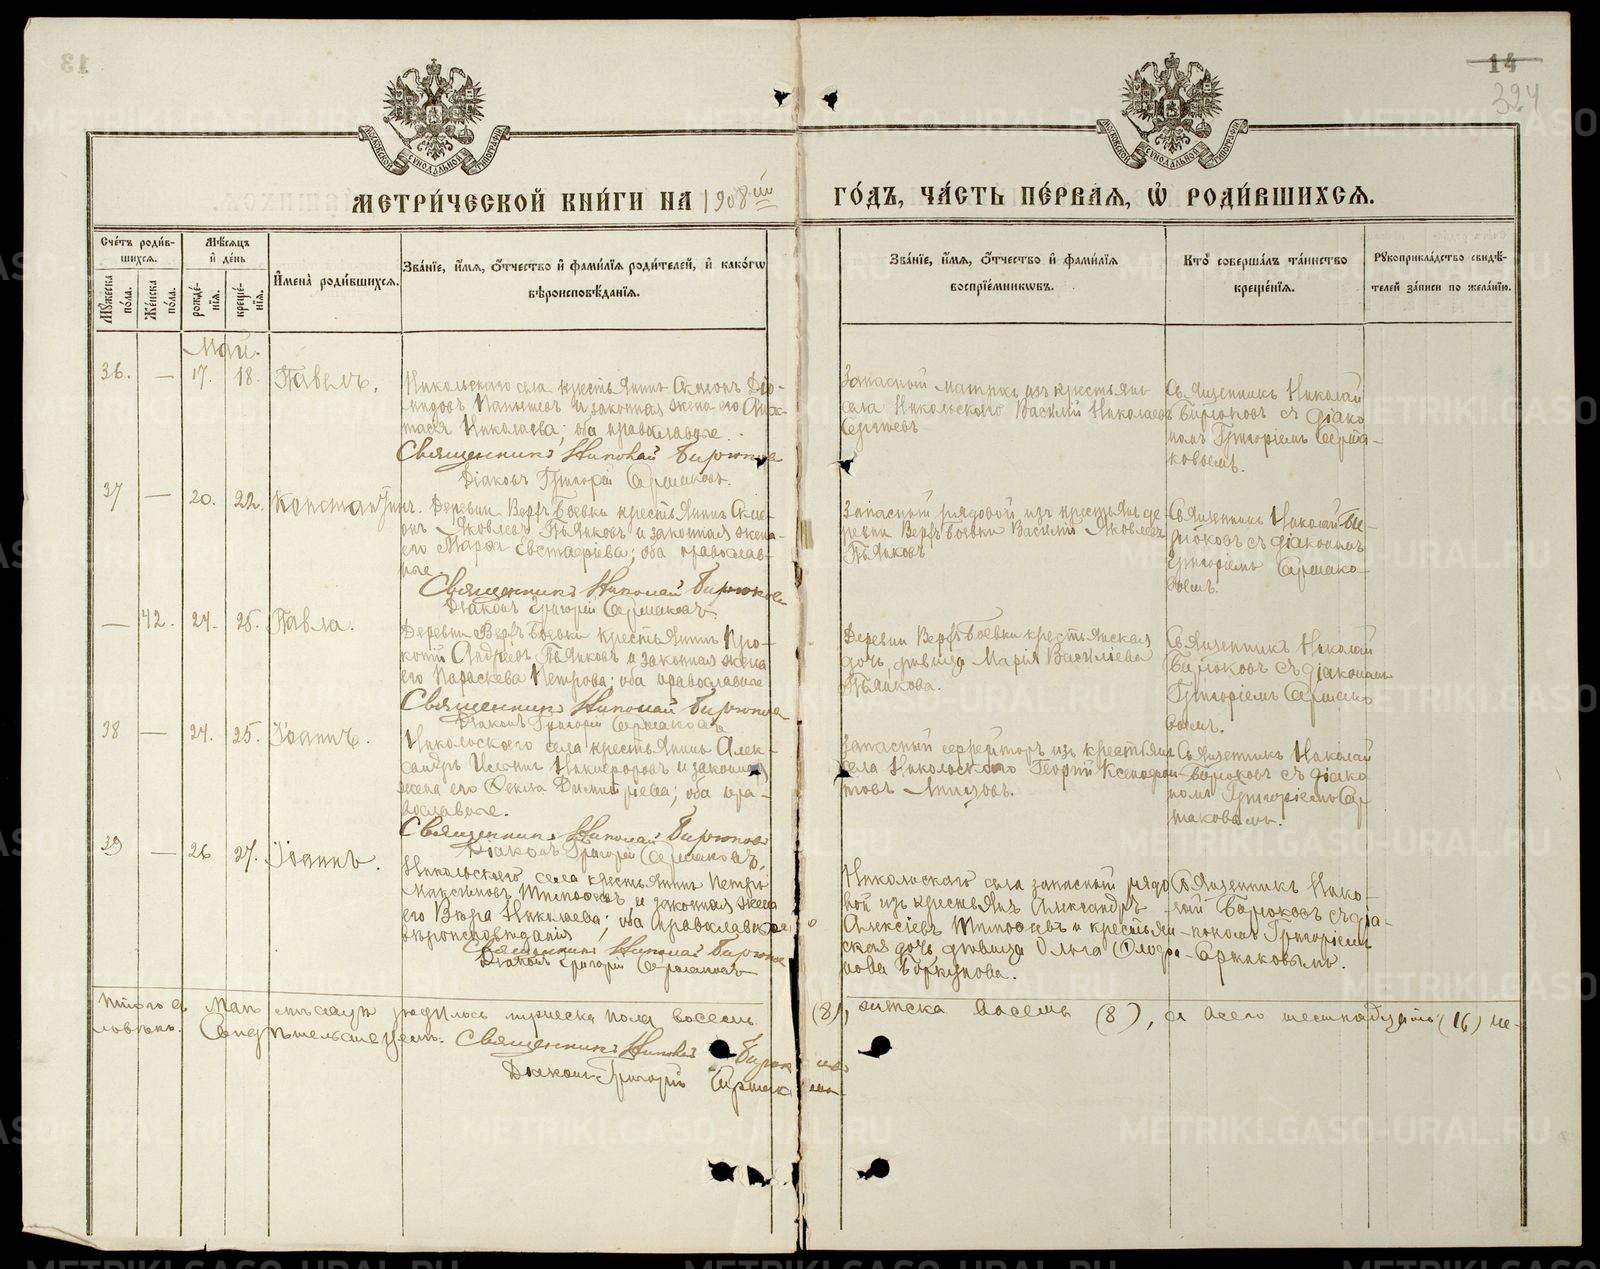 13
14
324
МОСКОВСКОЙ СѴНОДАЛЬНОЙ ТИПОГРАФІИ
МОСКОВСКОЙ СѴНОДАЛЬНОЙ ТИПОГРАФІИ
МЕТРИ́ЧЕСКОЙ КНИ́ГИ НА 1908й
ГО́ДЪ, ЧА́СТЬ ПЕ́РВАЯ, Ѡ҆ РОДИ́ВШИХСЯ.
Сче́тъ роди́в-
шихся.
Мꙋ́жеска по́ла.
Же́нска по́ла.
Мѣ́сяцъ
и҆ де́нь
рожде́-нїя.
креще́-нїя.
И҆мена̀ роди́вшихся.
Зва́нїе, и҆́мя, ѻ҆́тчество и҆ фами́лїя роди́телей, и҆ како́гѡ
вѣроисповѣ́данїя.
Зва́нїе, и҆́мя, ѻ҆́тчество и҆ фами́лїя
воспрїе́мникѡвъ.
Кто̀ соверша́лъ та́инство
креще́нїя.
Рꙋкоприкла́дство свидѣ́-
телей за́писи по жела́нїю.
Май.
36. — 17. 18. Павелъ.
Никольскаго села крестьянинъ Симеонъ Дио-
мидовъ и законная жена его Анас-
тасія Николаева; оба православные.
Священникъ Николай Бирюковъ
Діаконъ Григорій Сармаковъ.
Запасной матросъ изъ крестьянъ
села Никольскаго Василій Николаевъ
Сергѣевъ
Священникъ Николай
Бирюковъ съ діако-
номъ Григоріемъ Сарма-
ковымъ.
37 — 20. 22. Константинъ.
Деревни Верхъ Боевки крестьянинъ Симе-
онъ Яковлевъ Пьянковъ и законная жена
его Марѳа Евстафіева; оба православ-
ные.
Священникъ Николай Бирюковъ
Діаконъ Григорій Сармаковъ.
Запасный рядовой изъ крестьянъ де-
ревни Верхъ Боевки Василій Яковлевъ
Пьянковъ
Священникъ Николай Би-
рюковъ съ діакономъ
Григоріемъ Сармако-
вымъ.
— 42. 24. 25. Павла.
Деревни Верхъ Боевки крестьянинъ Про-
копій Андреевъ Пьянковъ и законная жена
его Параскева Петрова; оба православные
Священникъ Николай Бирюковъ
Діаконъ Григорій Сармаковъ
Деревни Верхъ Боевки крестьянская
дочь, дѣвица Марія Василіева
Пьянкова.
Священникъ Николай
Бирюковъ съ діакономъ
Григоріемъ Сармако-
вымъ.
38 — 24. 25. Іоаннъ.
Никольскаго села крестьянинъ Алек-
сандръ Никифоровъ и законная
жена его Ѳекла Димитріева; оба пра-
вославные.
Священникъ Николай Бирюковъ
Діаконъ Григорій Сармаковъ.
Запасный ефрейторъ изъ крестьянъ
села Никольскаго Георгій Ксенофон-
товъ
Священникъ Николай
Бирюковъ съ діако-
номъ Григоріемъ Сар-
маковымъ.
39 — 26 27. Іоаннъ.
Никольскаго села крестьянинъ Петръ
Максимовъ Тимофеевъ и законная жена
его Вѣра Николаева; оба православнаго
вѣроисповѣданія
Священникъ Николай Бирюковъ
Діаконъ Григорій Сармаковъ
Никольскаго села запасный рядо-
вой изъ крестьянъ Александръ
Алексіевъ Тимофеевъ и крестьян-
ская дочь, дѣвица Ольга
Боркунова.
Священникъ Нико-
лай Бирюковъ съ діа-
кономъ Григоріемъ
Сармаковымъ.
Итого въ Маѣ мѣсяцѣ родилось мужеска пола восемь (8), женска восемь (8), а всего шестнадцать (16) че-
ловѣкъ. Свидѣтельствуемъ. Священникъ Николай Бирюковъ
Діаконъ Григорій Сармаковъ
METRIKI.GASO-URAL.RU